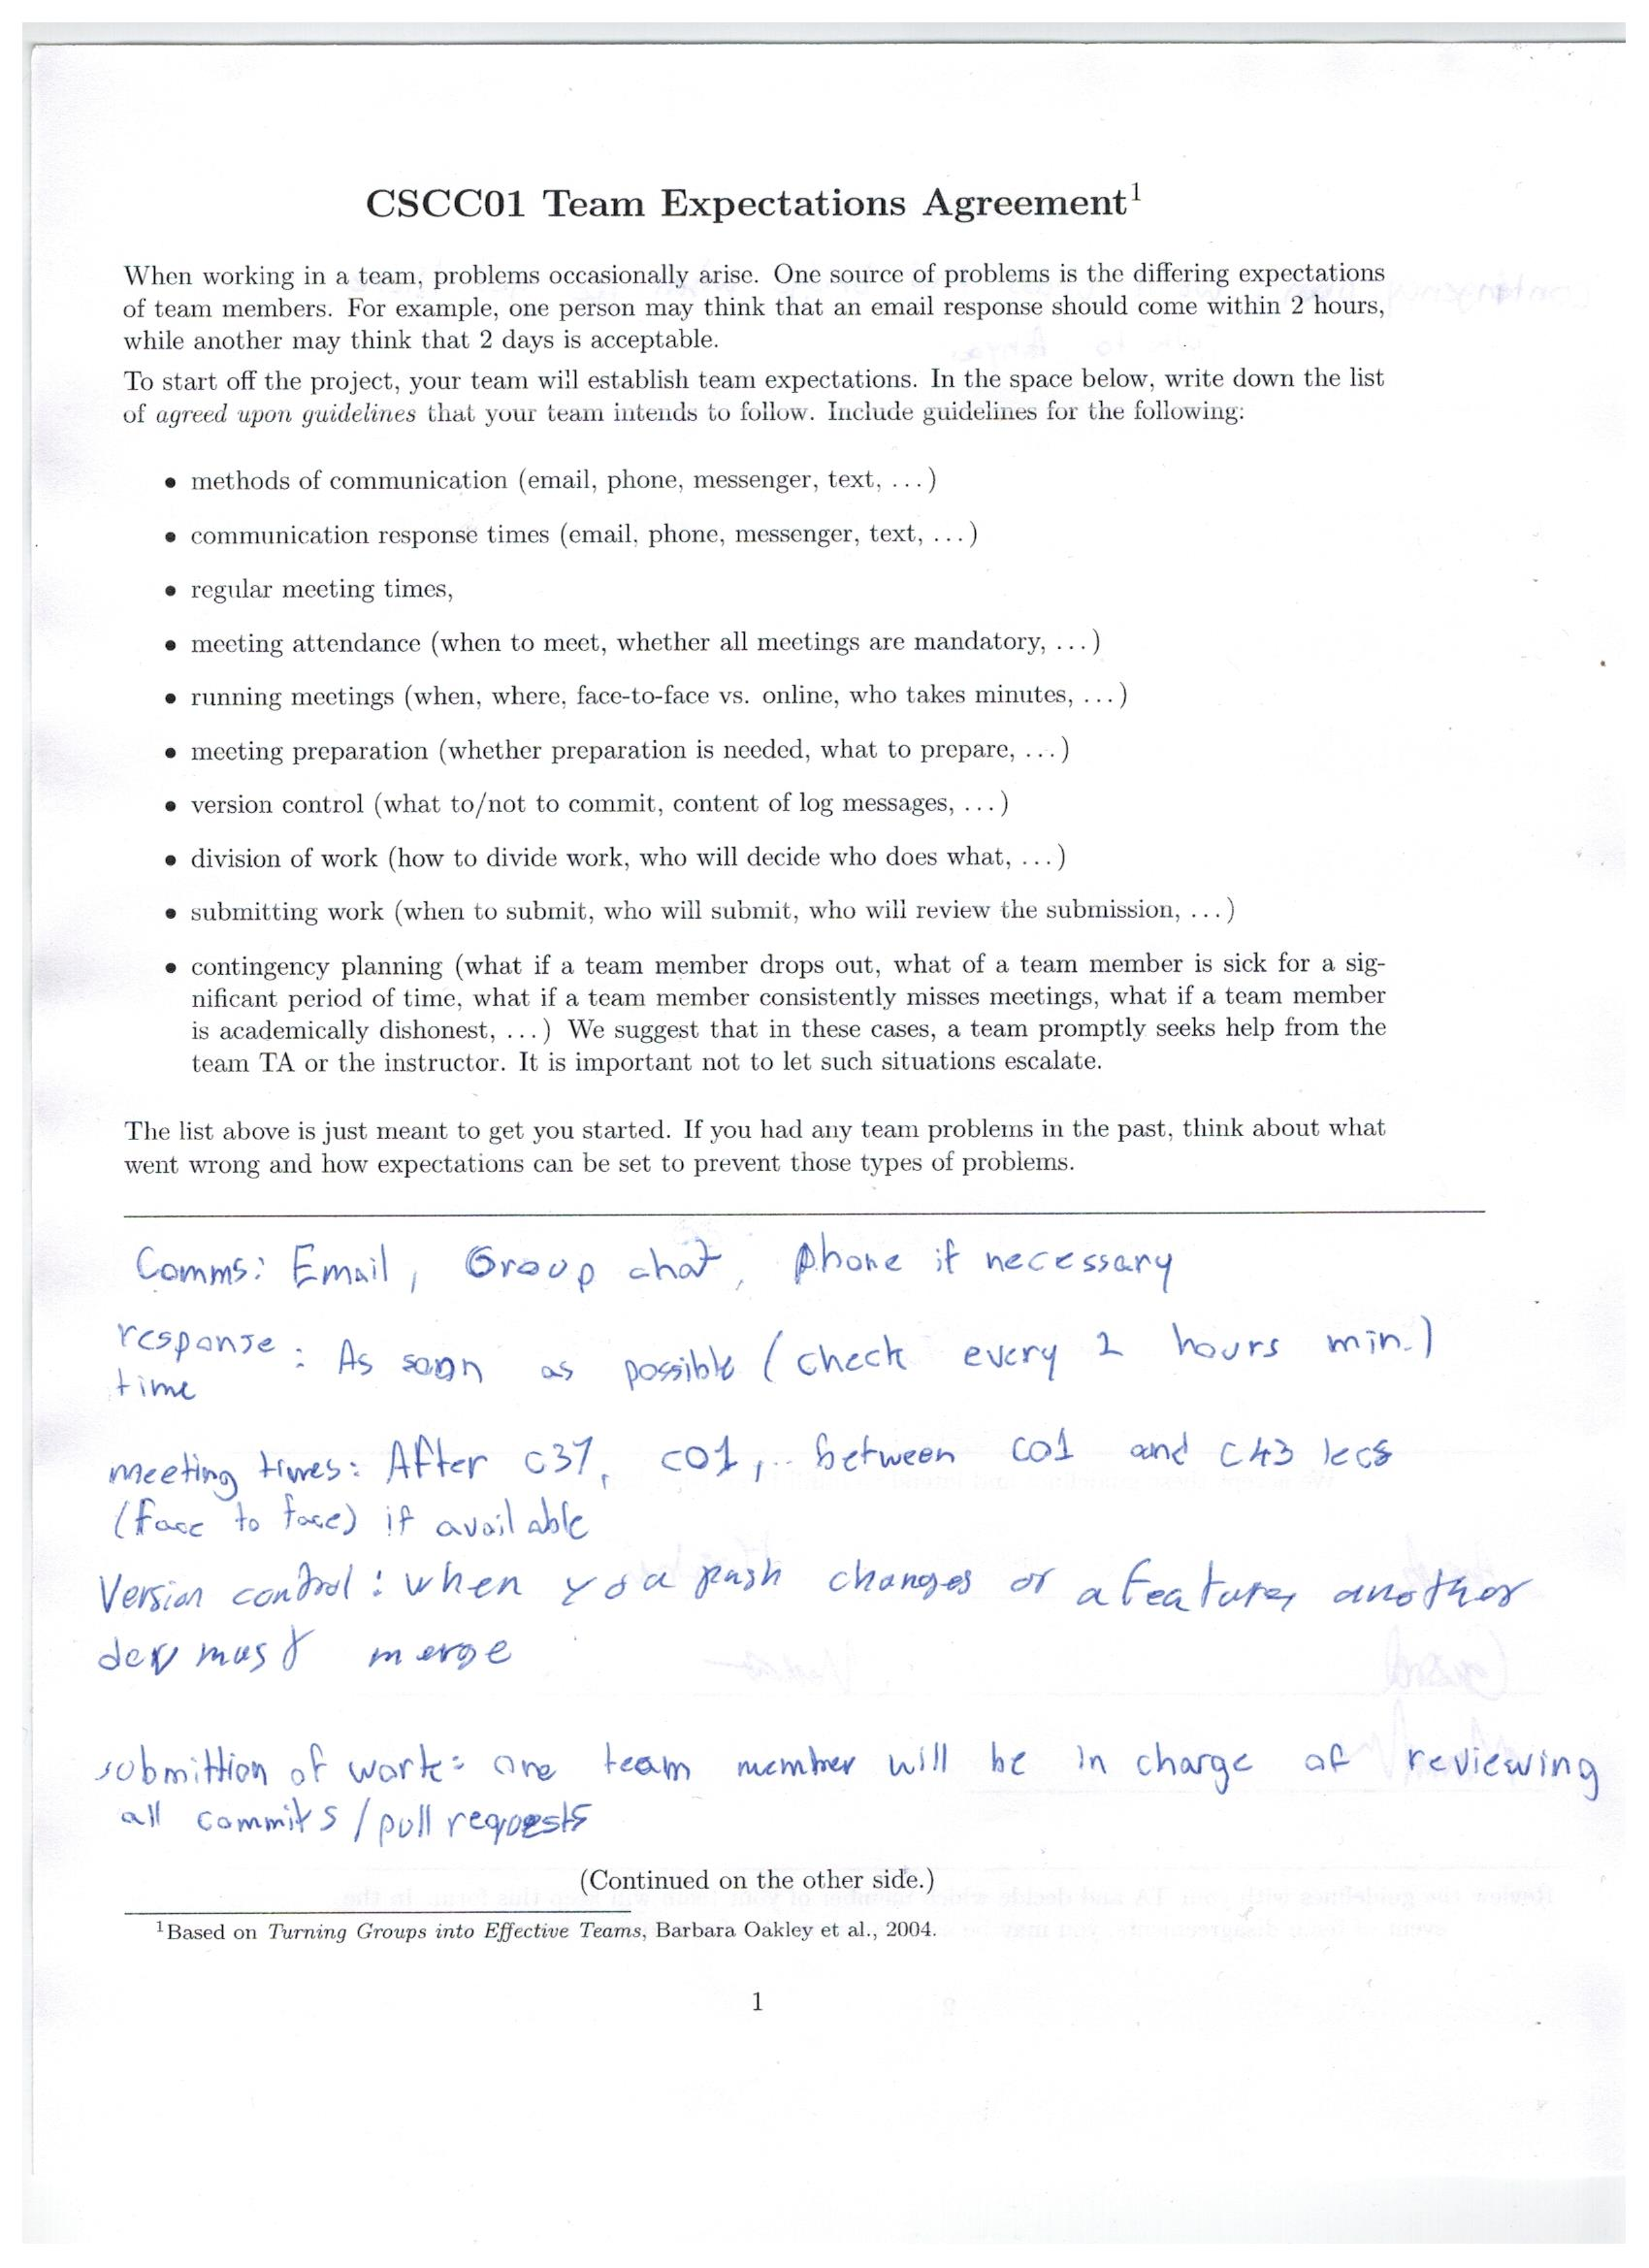 CSCC01 Team Expectations Agreement¹
When working in a team, problems occasionally arise. One source of problems is the differing expectations
of team members. For example, one person may think that an email response should come within 2 hours,
while another may think that 2 days is acceptable.
To start off the project, your team will establish team expectations. In the space below, write down the list
of agreed upon guidelines that your team intends to follow. Include guidelines for the following:
• methods of communication (email, phone, messenger, text, ...)
• communication response times (email, phone, messenger, text, ...)
• regular meeting times,
• meeting attendance (when to meet, whether all meetings are mandatory, ...)
• running meetings (when, where, face-to-face vs. online, who takes minutes, ...)
• meeting preparation (whether preparation is needed, what to prepare, ...)
• version control (what to/not to commit, content of log messages, ...)
• division of work (how to divide work, who will decide who does what, ...)
• submitting work (when to submit, who will submit, who will review the submission, ...)
• contingency planning (what if a team member drops out, what of a team member is sick for a sig-
nificant period of time, what if a team member consistently misses meetings, what if a team member
is academically dishonest, ...) We suggest that in these cases, a team promptly seeks help from the
team TA or the instructor. It is important not to let such situations escalate.
The list above is just meant to get you started. If you had any team problems in the past, think about what
went wrong and how expectations can be set to prevent those types of problems.
Comms: Email, Group chat, phone if necessary
response : As soon as possible (check every 2 hours min.)
time
meeting times: After C37, C01, .. between C01 and C43 lecs
(face to face) if available
Version control: when you push changes or a feature, another
dev must merge
submittion of work: one team member will be in charge of reviewing
all commits/pull requests
(Continued on the other side.)
¹Based on Turning Groups into Effective Teams, Barbara Oakley et al., 2004.
1